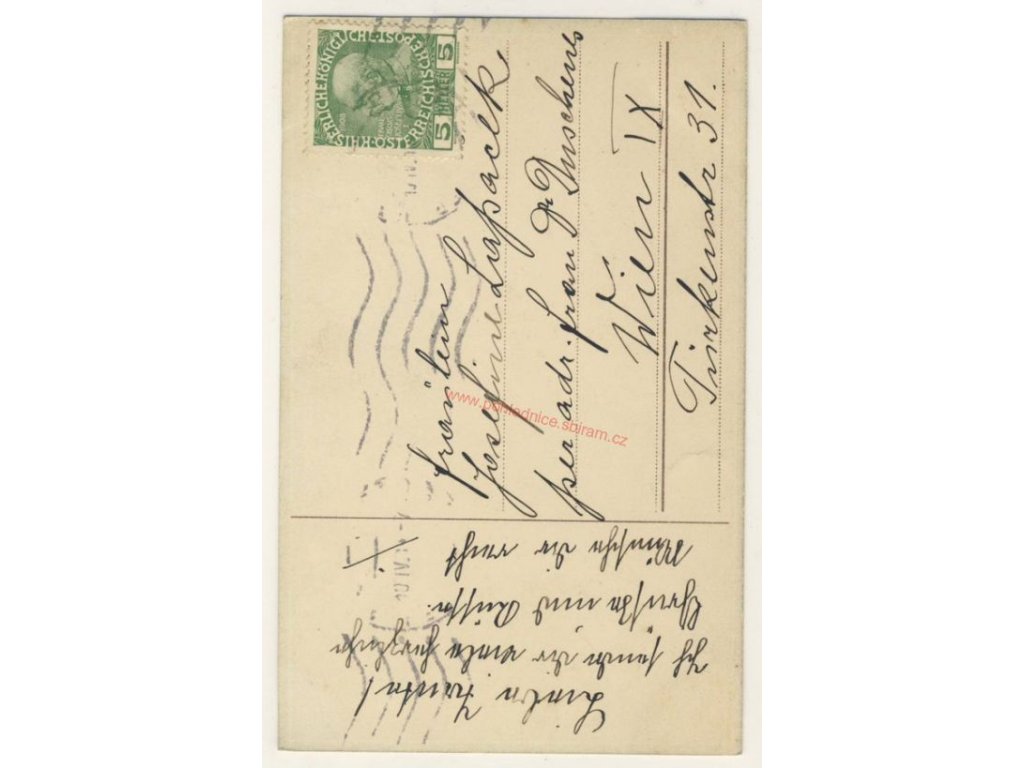 KAISERLICHE KÖNIGLICHE ÖSTERREICHISCHE POST
5 HELLER 5
Fräulein
Josefine
per adr. Frau Dr. Duschens
Wien IX
Türkenstr 31.
www.pohlednice.sbiram.cz
Liebe Tante!
Ich sende dir viele herzliche
Grüße und Küsse.
Wünsche dir recht
10 IV